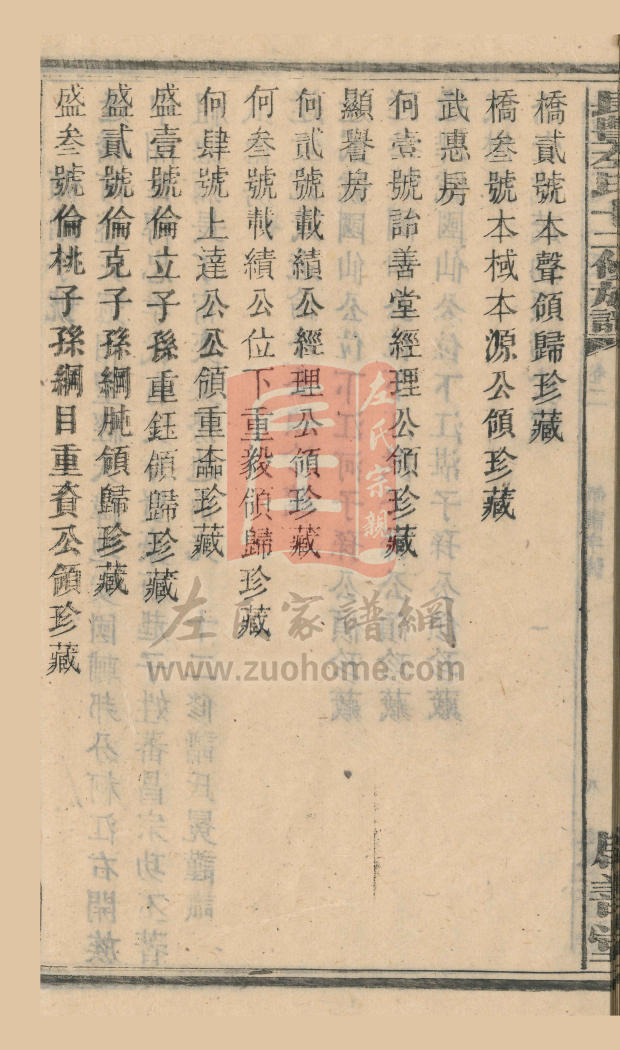 橋貳號本聲領歸珍藏
橋叁號本棫本源公領珍藏
武惠房
何壹號詒善堂經理公領珍藏
顯譽房
何貳號載績公經理公領珍藏
何叁號載績公位下重毅領歸珍藏
何肆號上達公公領重森珍藏
盛壹號倫立子孫重鈺領歸珍藏
盛貳號倫克子孫綱肫領歸珍藏
盛叁號倫桃子孫綱目重賁公領珍藏
左氏宗親
左氏家譜網
www.zuohome.com